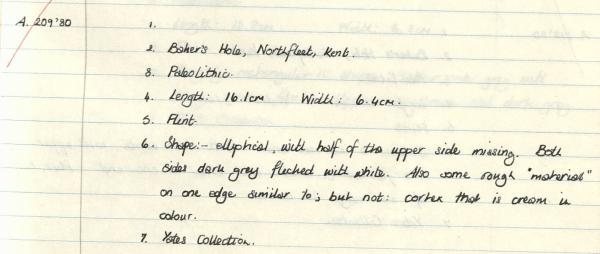 A. 209'80
1.
2. Baker's Hole, Northfleet, Kent.
3. Paleolithic.
4. Length: 16.1cm Width: 6.4cm.
5. Flint.
6. Shape:- elliptical, with half of the upper side missing. Both
sides dark grey flecked with white. Also some rough "material"
on one edge similar to; but not: cortex that is cream in
colour.
7. Yates Collection.